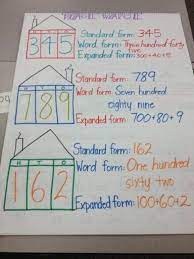 PLACE VALUE
345
Standard form: 345
Word form: Three hundred forty
five
Expanded form: 300+40+5
H T O
789
Standard form: 789
Word form: Seven hundred
eighty nine
Expanded form: 700+80+9
H T O
162
Standard form: 162
Word form: One hundred
sixty two
Expanded form: 100+60+2